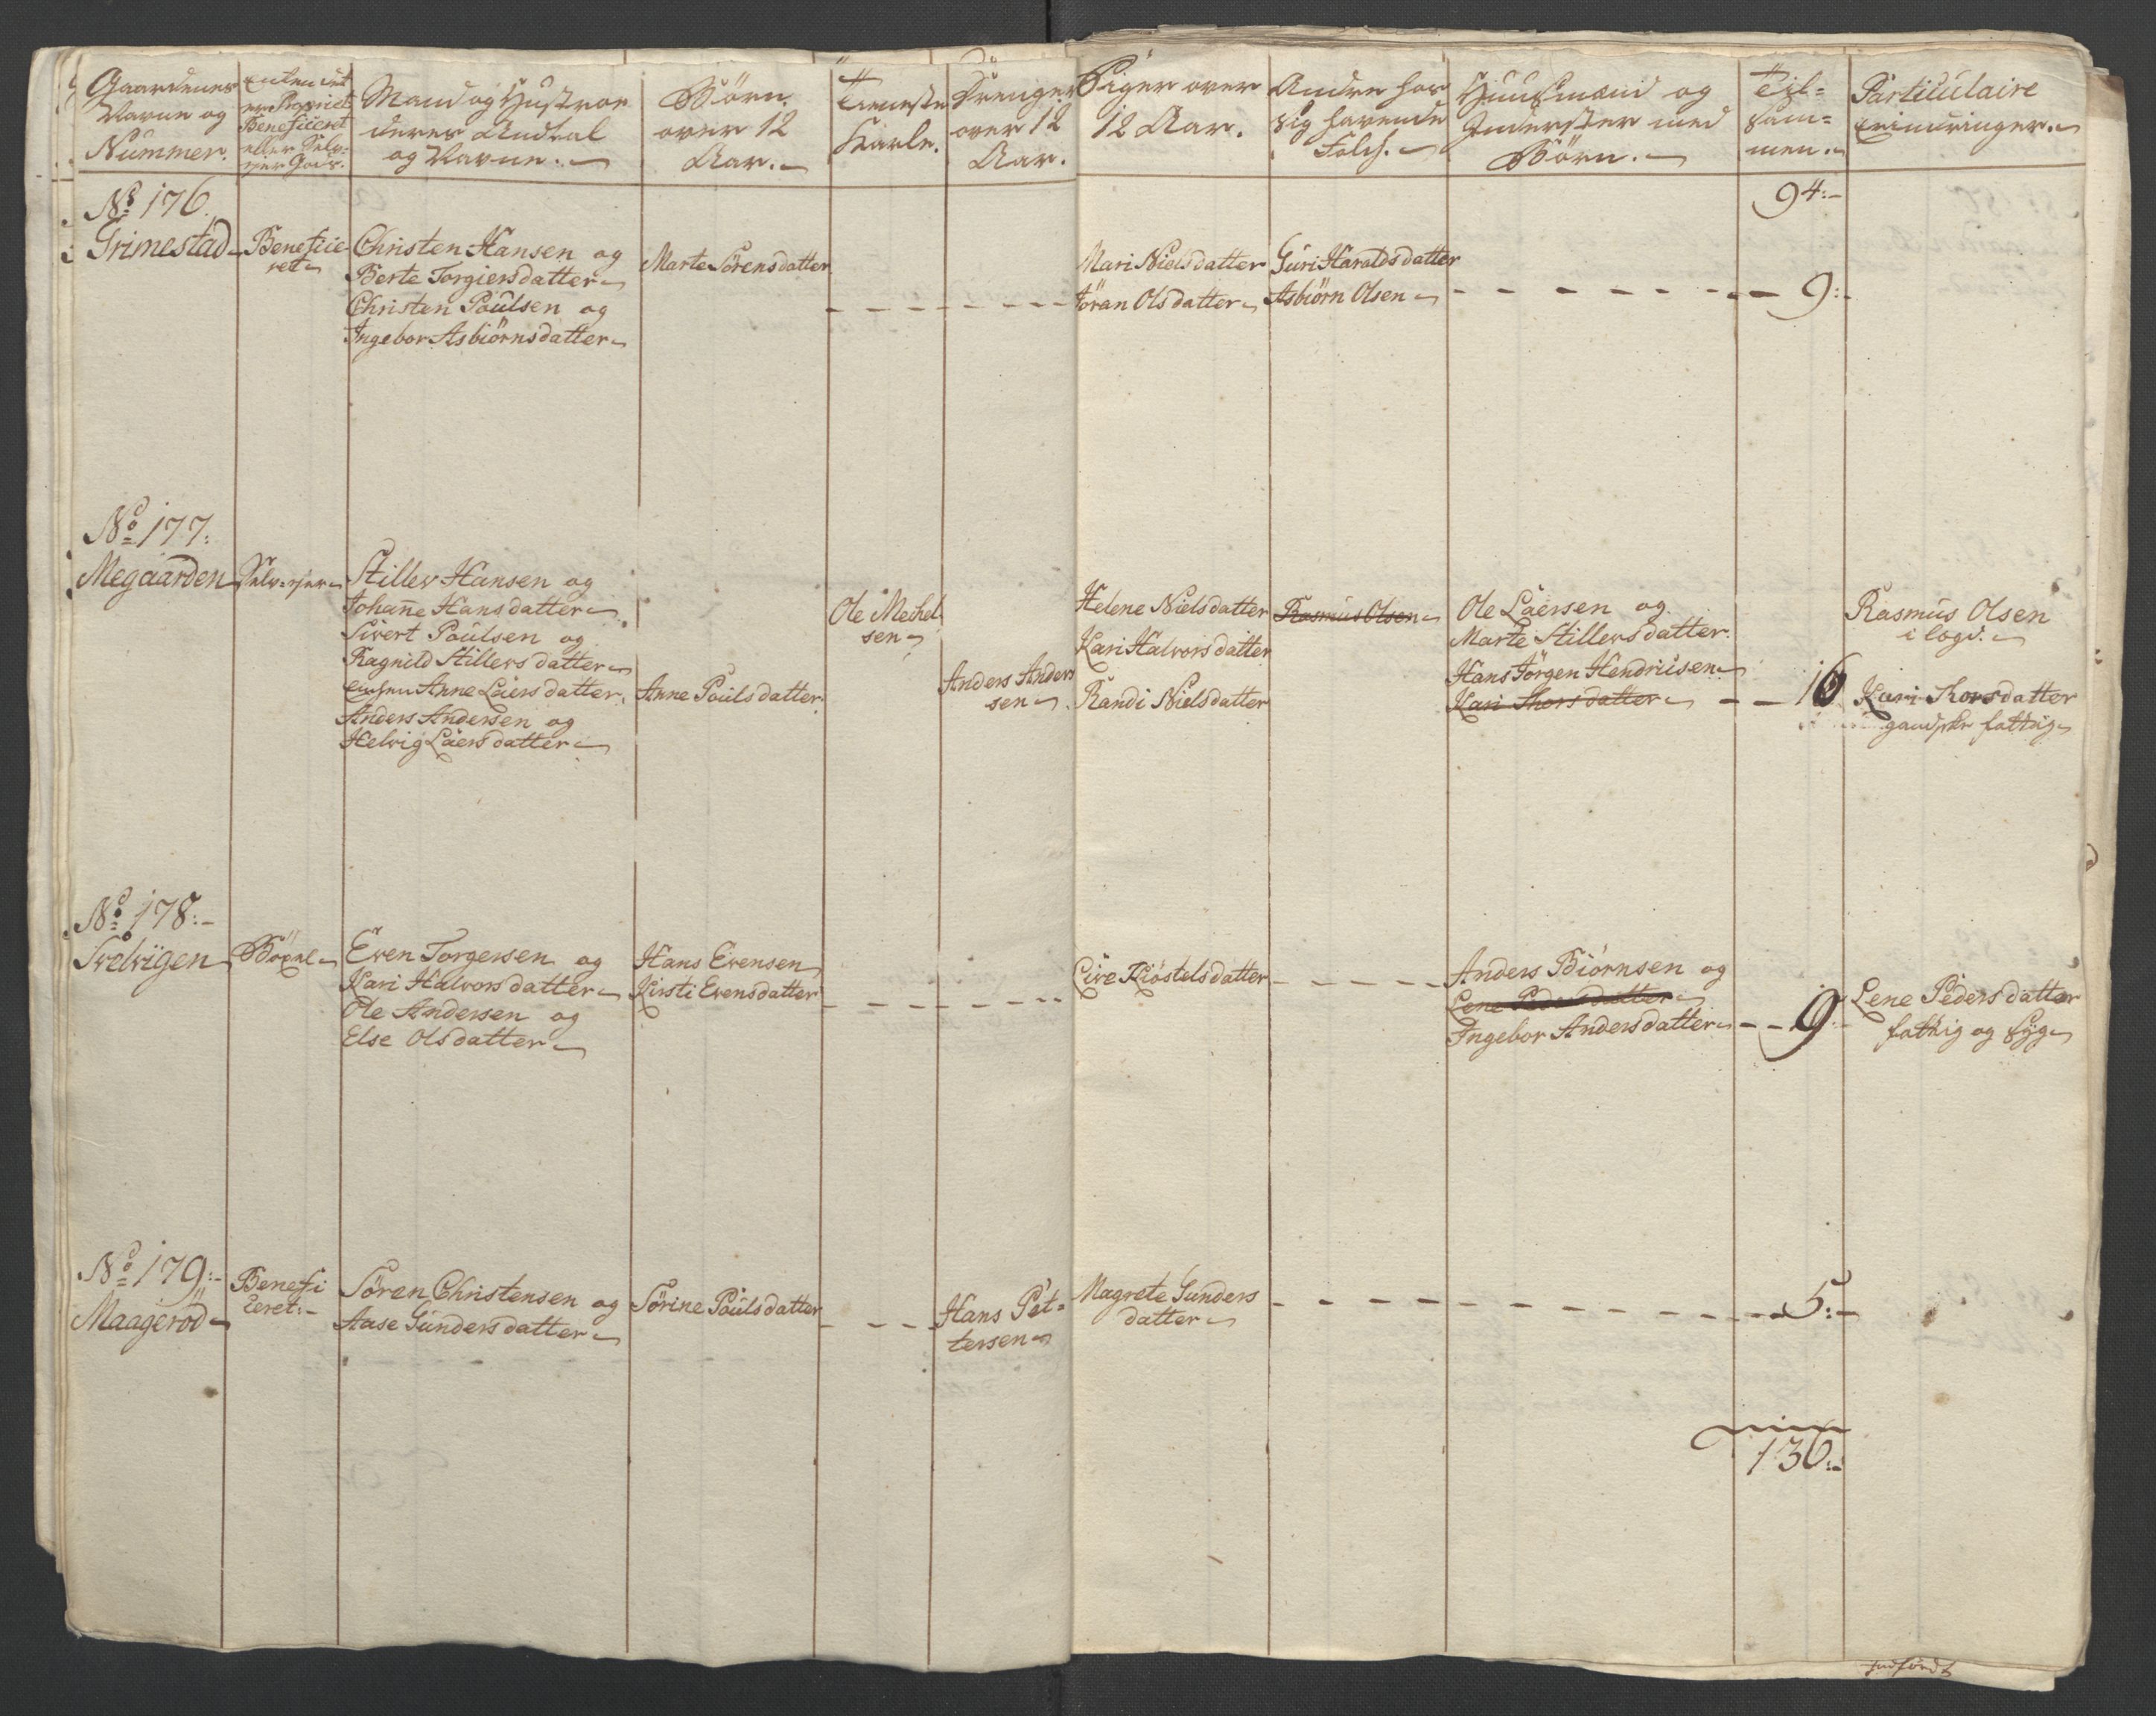 Gaardenes
Navne og
Nummer.
Enten det
er Propriet
Beneficeret
eller Selv-
ejer Gods.
Mand og Hustroe
deres Andtal
og Navne.
Börn
over 12
Aar.
Tieneste
Karle.
Drenge
over 12
Aar.
Piger over
12 Aar.
Andre hos
sig havende
Folch.
Huusmænd og
Inderster med
Börn.
Til=
sam=
men.
Particulaire
Erindringer.
94:-
No 176.
Grimestad
Beneficie
ret
Christen Hansen og
Berte Torgiersdatter
Christen Poulsen og
Ingebor Asbiörnsdatter
Marte Sörensdatter
Mari Nielsdatter
Jöran Olsdatter
Guri Haraldsdatter
Asbiörn Olsen
9:-
No 177:
Megaarden
Selv-ejer
Stiller Hansen og
Johanne Hansdatter
Sivert Poulsen og
Ragnild Stillersdatter
Enchen Anne Läersdatter
Anders Andersen og
Helvig Läersdatter
Anne Poulsdatter
Ole Mechel
sen
Anders Anders
sen
Helene Nielsdatter
Kari Halvorsdatter
Randi Nielsdatter
Rasmus Olsen
Ole Läersen og
Marte Stillersdatter
Hans Jörgen Hendricsen
Kari Thorsdatter
16
Rasmus Olsen
i logi.
Kari Thorsdatter
gandske fattig
No 178:-
Svelvigen
Even Torgersen og
Kari Halvorsdatter
Ole Andersen og
Else Olsdatter
Hans Evensen
Kirsti Evensdatter
Live Kiöstelsdatter
Anders Biörnsen og
Lene Pedersdatter
Ingebor Andersdatter
9
Lene Pedersdatter
fattig og syg
No 179:-
Maageröd
Benefi
ceret:-
Sören Christensen og
Aase Gundersdatter
Sörine Poulsdatter
Hans Pet=
tersen
Magrete Gunders
datter
5:-
136:-